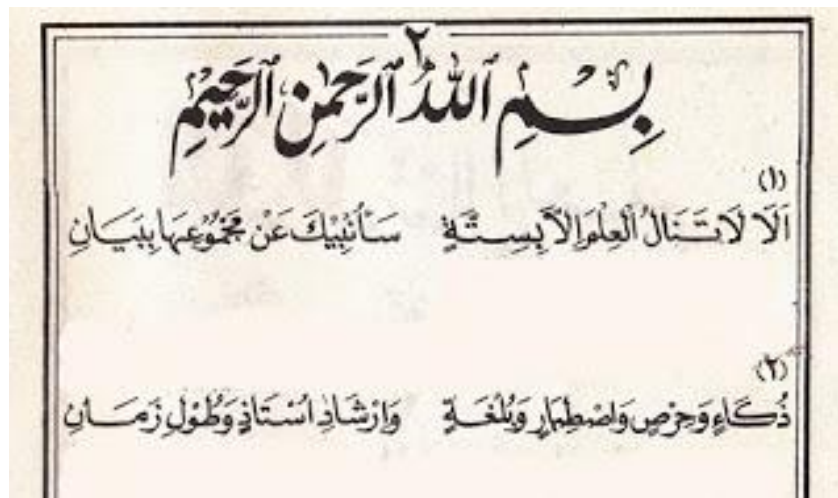 ٢
بِسْمِ ٱللهِ ٱلرَّحْمٰنِ ٱلرَّحِيْمِ
(١)
اَلَا لَا تَنَالُ الْعِلْمَ اِلَّا بِسِتَّةٍ سَأُنْبِيْكَ عَنْ مَجْمُوْعِهَا بِبَيَانِ
(٢)
ذُكَاءٍ وَحِرْصٍ وَاصْطِبَارٍ وَبُلْغَةٍ وَاِرْشَادِ اُسْتَاذٍ وَطُوْلِ زَمَانِ